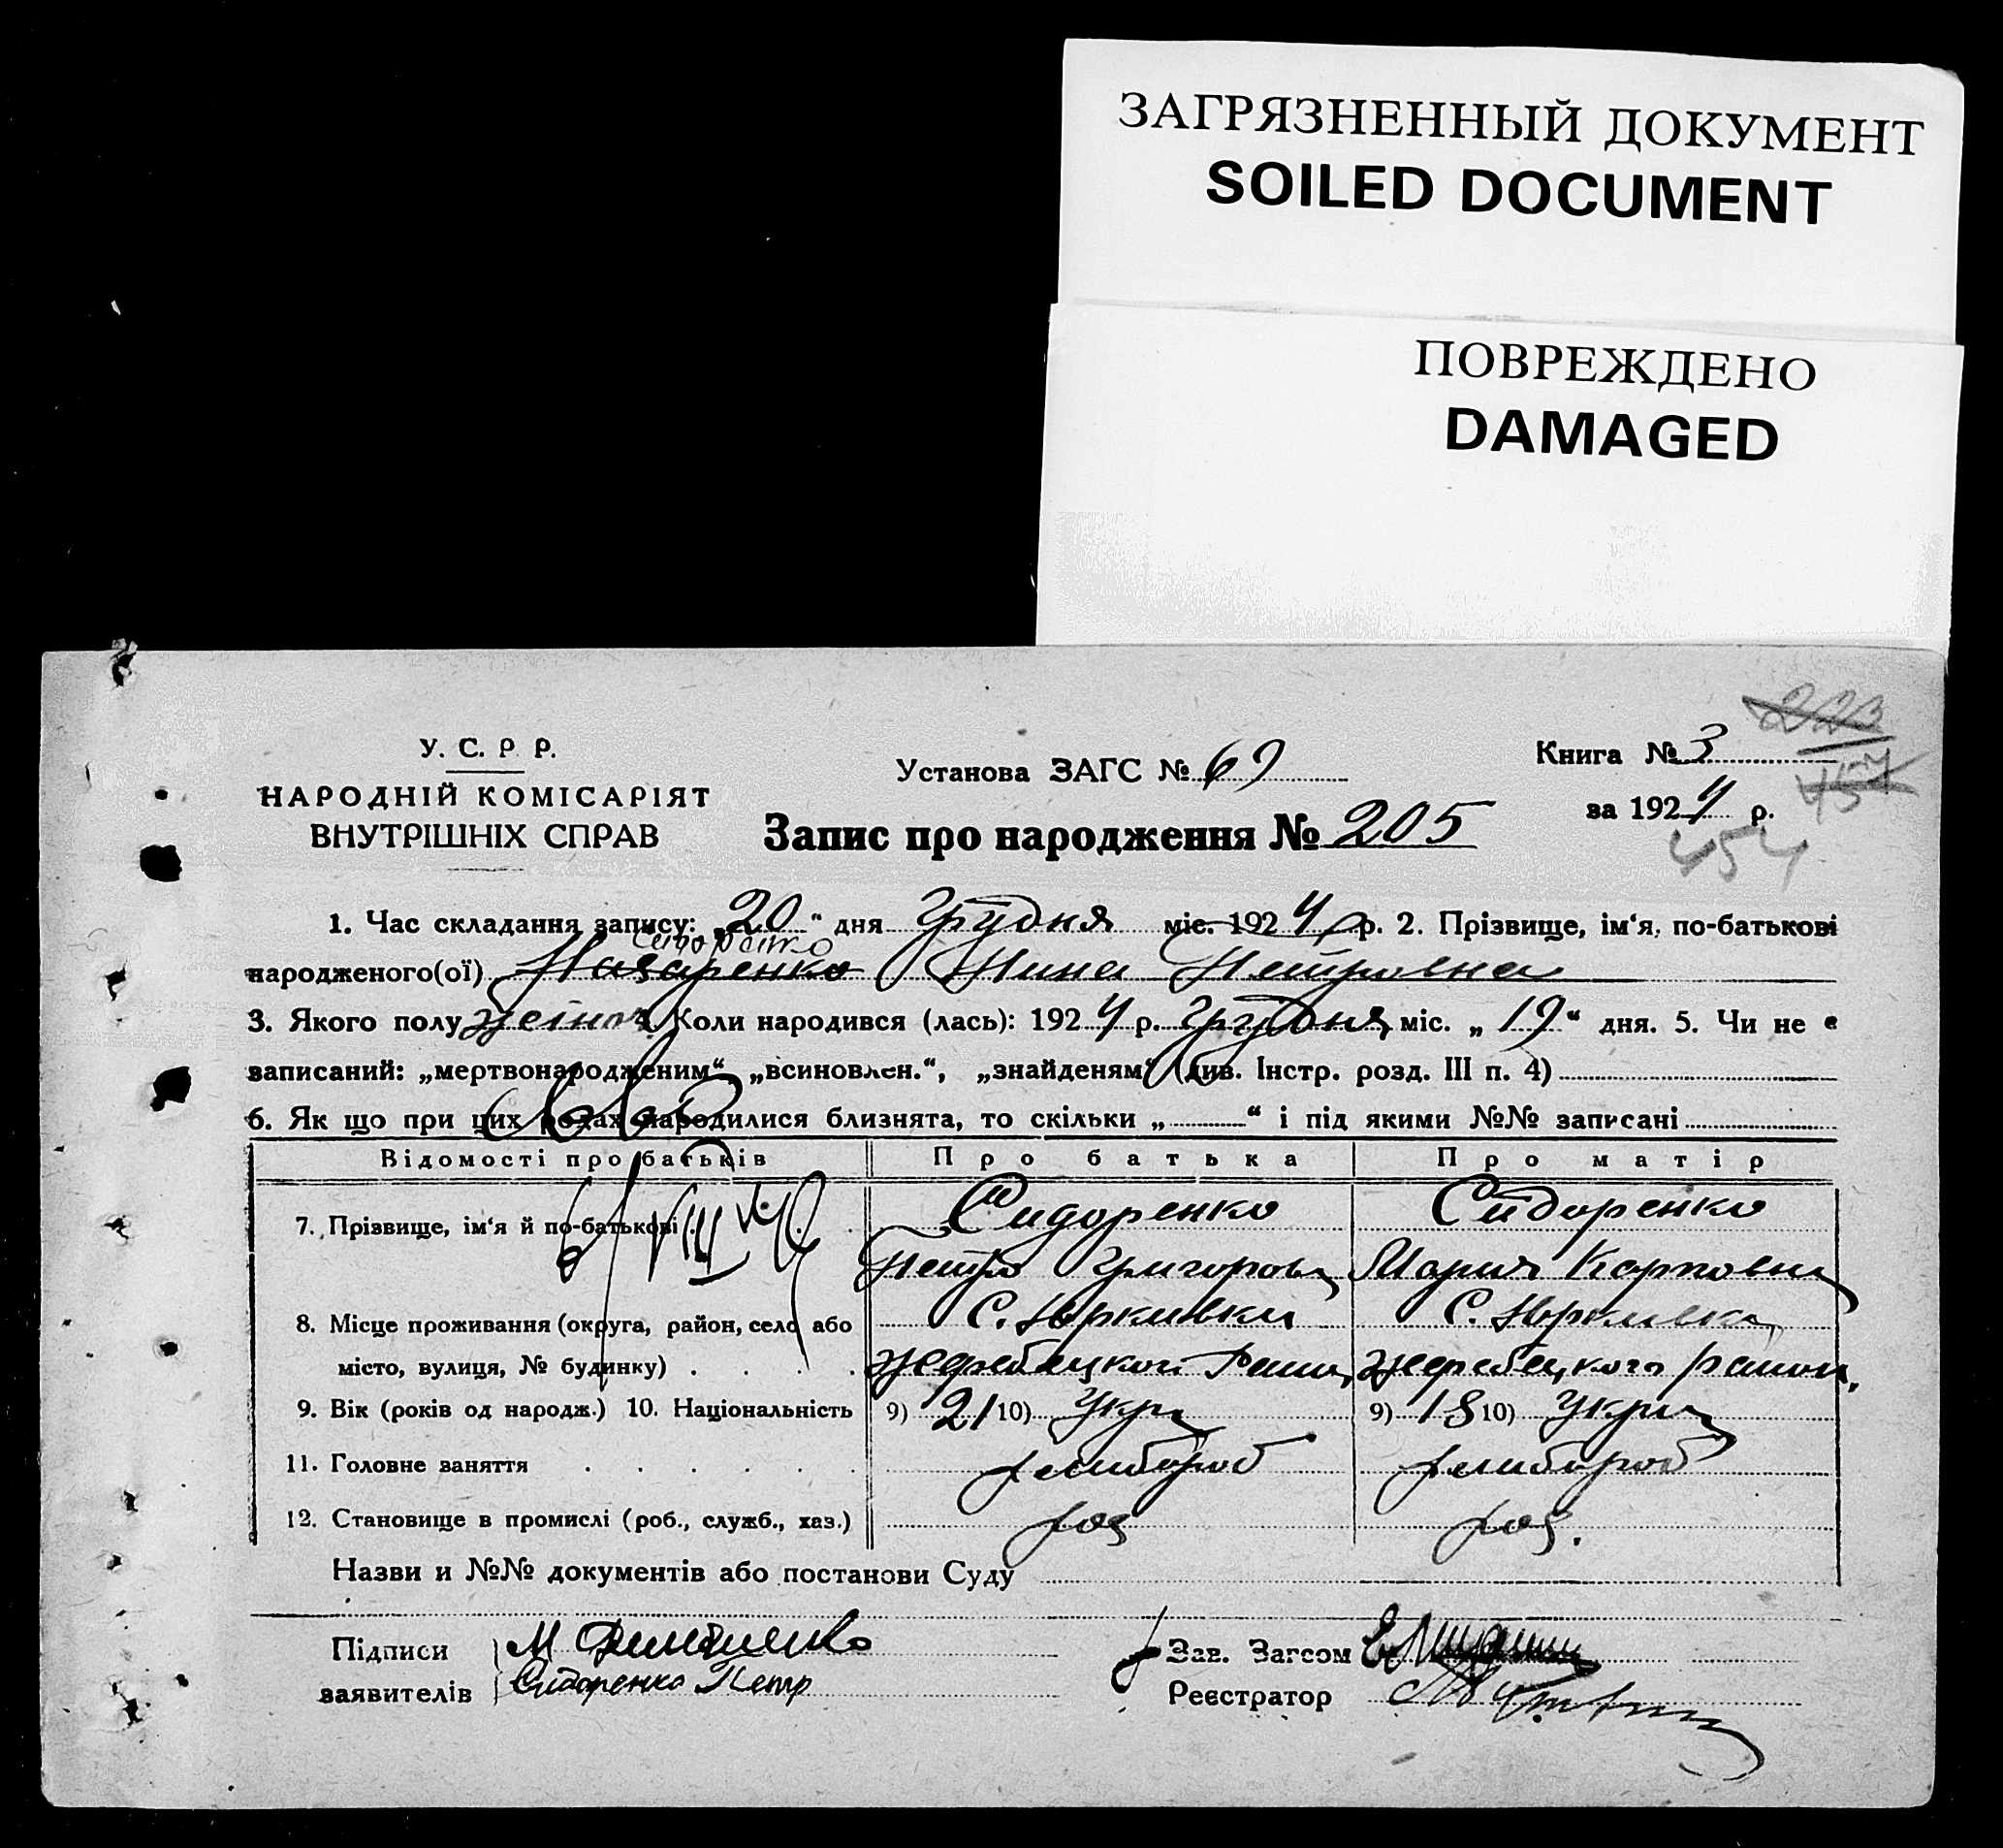 ЗАГРЯЗНЕННЫЙ ДОКУМЕНТ
SOILED DOCUMENT
ПОВРЕЖДЕНО
DAMAGED
223
У. С. Р. Р.
Установа ЗАГС № 69
Книга № 3
457
НАРОДНІЙ КОМІСАРІЯТ
за 1924 р.
ВНУТРІШНІХ СПРАВ
Запис про народження № 205
454
1. Час складання запису: „20“ дня Грудня міс. 1924 р. 2. Прізвище, ім‘я, по-батькові
Сидоренко
народженого(ої) Назаренко Нина Петровна
3. Якого полу жіноч 4. Коли народився (лась): 1924 р. Грудня міс. „19“ дня. 5. Чи не є
записаний: „мертвонародженим“ „всиновлен.“, „знайденям“ (див. Інстр. розд. III п. 4)
6. Як що при цих родах народилися близнята, то скільки „ “ і під якими №№ записані
Відомості про батьків Про батька Про матір
7. Прізвище, ім‘я й по-батькові Сидоренко Сидоренко
VIII
Петро Григоров Мария Карповна
8. Місце проживання (округа, район, село або С. Юркивки С. Юркивка
місто, вулиця, № будинку) Жеребецкого Жеребецкого район
9. Вік (років од народж.) 10. Національність 9) 21 10) Укр 9) 18 10) Укр
11. Головне заняття хлибороб хлибороб
12. Становище в промислі (роб., служб., хаз.) хоз хоз.
Назви и №№ документів або постанови Суду
Підписи М Зав. Загсом
заявителів Сидоренко Петр Реєстратор